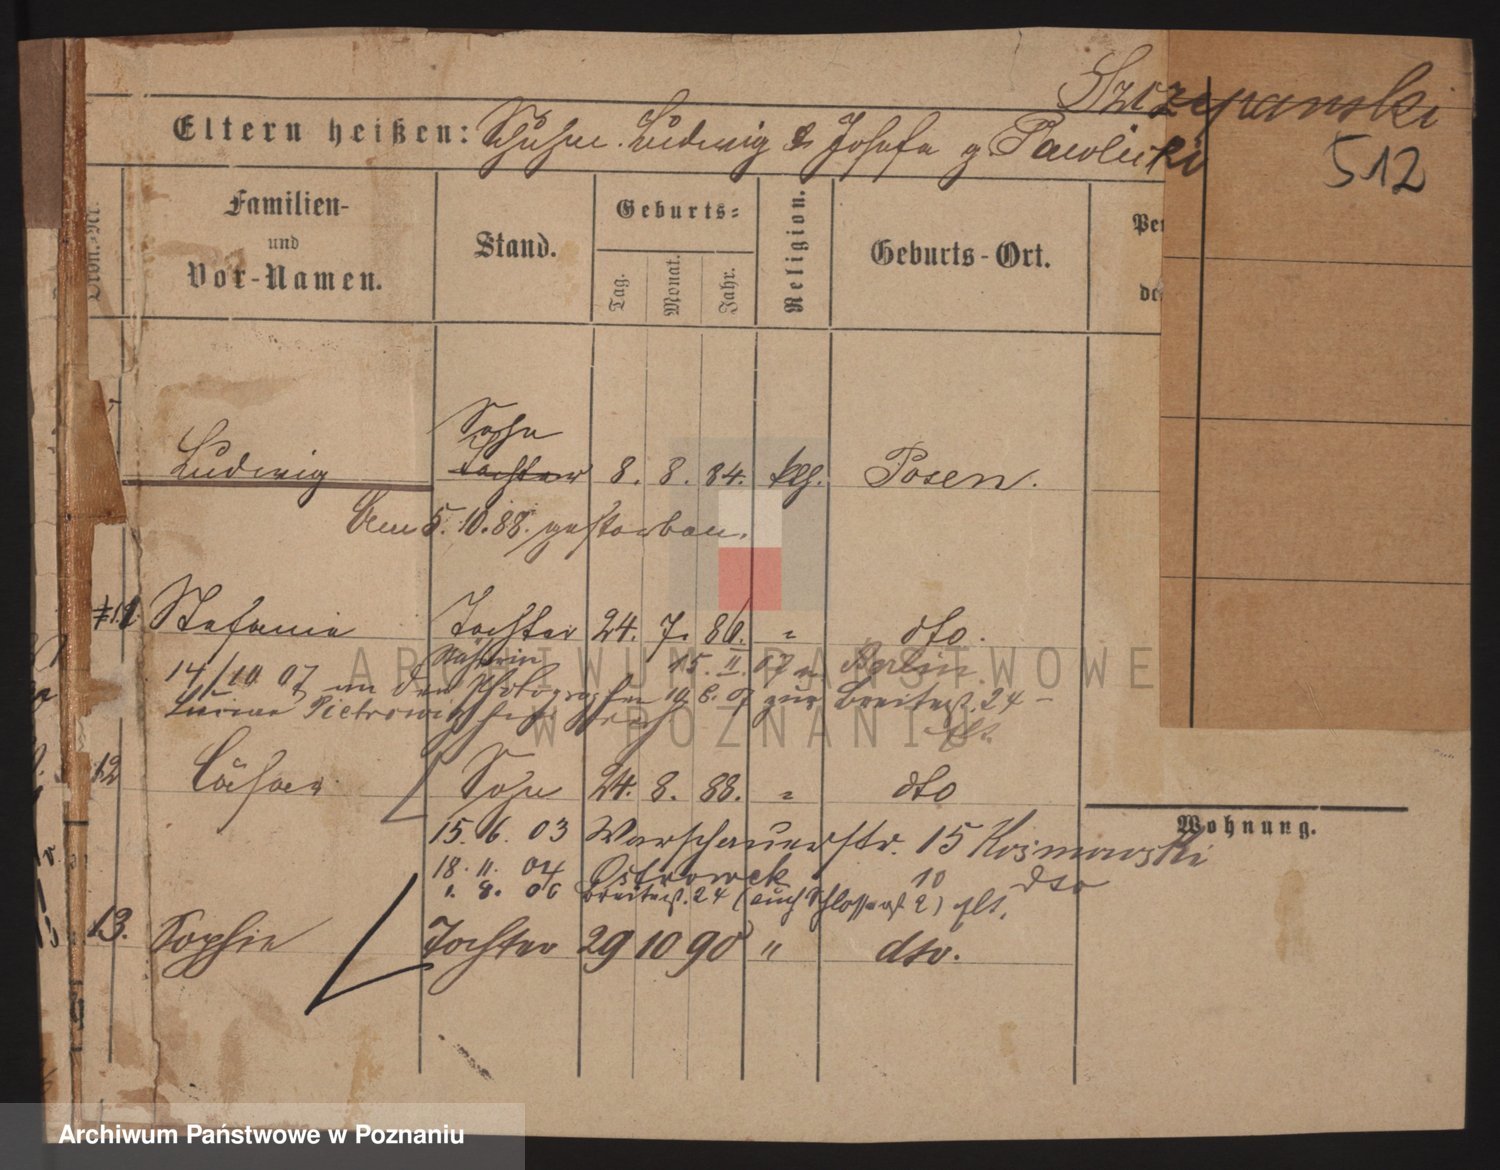 Szczepanski
512
Eltern heißen: Ludwig & Josefa g. Pawlicki
Familien- und Vor-Namen.
Stand.
Geburts-
Tag.
Monat.
Jahr.
Religion.
Geburts-Ort.
Sohn
Ludwig Tochter 8. 8. 84. klh. Posen.
Am 5. 10. 88. gestorben.
11. Stefania Tochter 24. 7. 86. " dto.
Näherin 15. II. 07 n. Berlin.
14/10 07 an den Photographen 10. 6. 07 zur Breitestr. 24 -
Lucian Pietrowicz
12 Sohn 24. 8. 88. " dto
Wohnung.
15. 6. 03 Warschauerstr. 15 Kosmowski
18. 11. 04 Ostrowek 10 dto
1. 8. 06 Breitestr. 24 (auch Schlosserstr 2) Elt.
13. Sophie Tochter 29 10 90 " dto.
ARCHIWUM PAŃSTWOWE
W POZNANIU
Archiwum Państwowe w Poznaniu